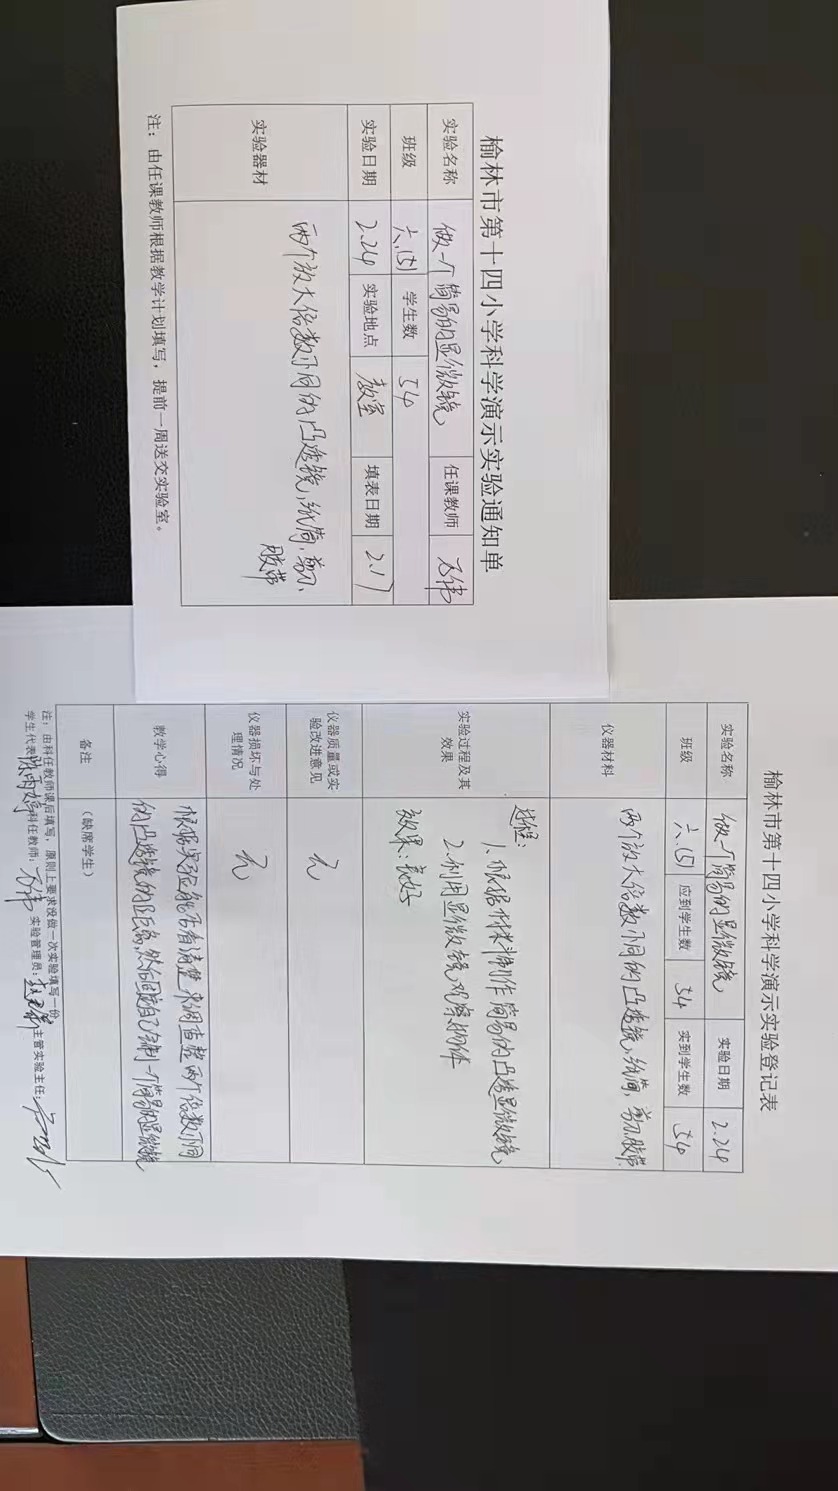 榆林市第十四小学科学演示实验通知单
实验名称 做一个简易的显微镜 任课教师
班级 六.(5) 学生数 54
实验日期 2.24 实验地点 教室 填表日期 2.17
实验器材 两个放大倍数不同的凸透镜,纸筒,剪刀、
胶带
注：由任课教师根据教学计划填写，提前一周送交实验室。
榆林市第十四小学科学演示实验登记表
实验名称 做一个简易的显微镜 实验日期 2.24
班级 六.(5) 应到学生数 54 实到学生数 54
仪器材料 两个放大倍数不同的凸透镜,纸筒,剪刀,胶带.
实验过程及其
效果
过程:
1.根据材料制作简易的凸透显微镜
2.利用显微镜观察物体
效果:良好
仪器质量或实
验改进意见
无
仪器损坏与处
理情况
无
教学心得
根据实验能否看清楚来调查整两个倍数不同
的凸透镜的距离,然后固定自己制一个简易的显微镜
备注 （缺席学生）
注：由科任教师课后填写，原则上要求没做一次实验填写一份
学生代表: 科任教师: 实验管理员: 主管实验主任: